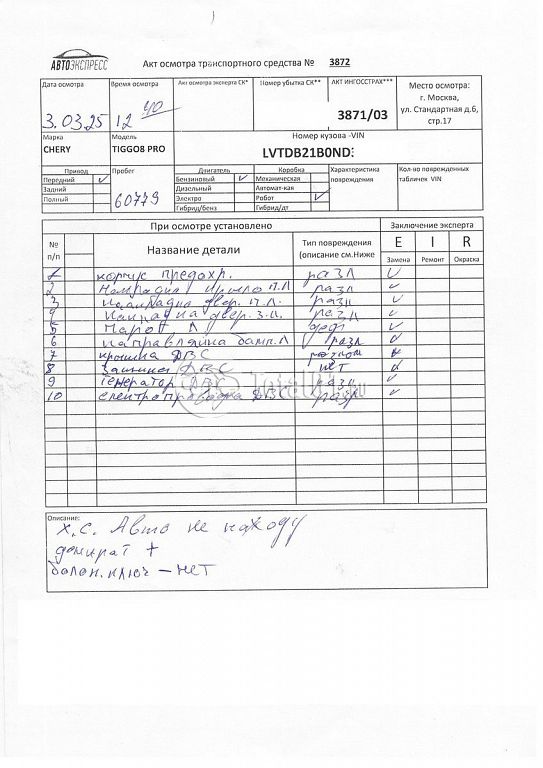 АВТОЭКСПРЕСС
Акт осмотра транспортного средства № 3872
Дата осмотра
3.03.25
Время осмотра
12 40
Акт осмотра эксперта СК*
Номер убытка СК**
АКТ ИНГОССТРАХ***
3871/03
Место осмотра:
г. Москва,
ул. Стандартная д.6,
стр.17
Марка
CHERY
Модель
TIGGO8 PRO
Номер кузова -VIN
LVTDB21B0ND
Привод
Передний ✓
Задний
Полный
Пробег
60779
Двигатель
Бензиновый ✓
Дизельный
Электро
Гибрид/бенз
Коробка
Механическая
Автомат-кая
Робот ✓
Гибрид/дт
Характеристика
повреждения
Кол-во поврежденных
табличек VIN
При осмотре установлено
Заключение эксперта
№
п/п
Название детали
Тип повреждения
(описание см.Ниже
E I R
Замена Ремонт Окраска
1 корпус предохр. разл ✓
2 Накладка крыло п.л разл ✓
3 Накладка двер. п.л. разл ✓
4 Накладка двер. з.л. разл ✓
5 Порог Л деф ✓
6 Направляйка бамп. Л разл ✓
7 крышка ДВС ✓
8 ДВС нет
9 Генератор ДВС разл ✓
10 електропроводка ДВС разр ✓
Описание:
х.с. Авто не на ходу
домкрат +
балон. ключ – нет